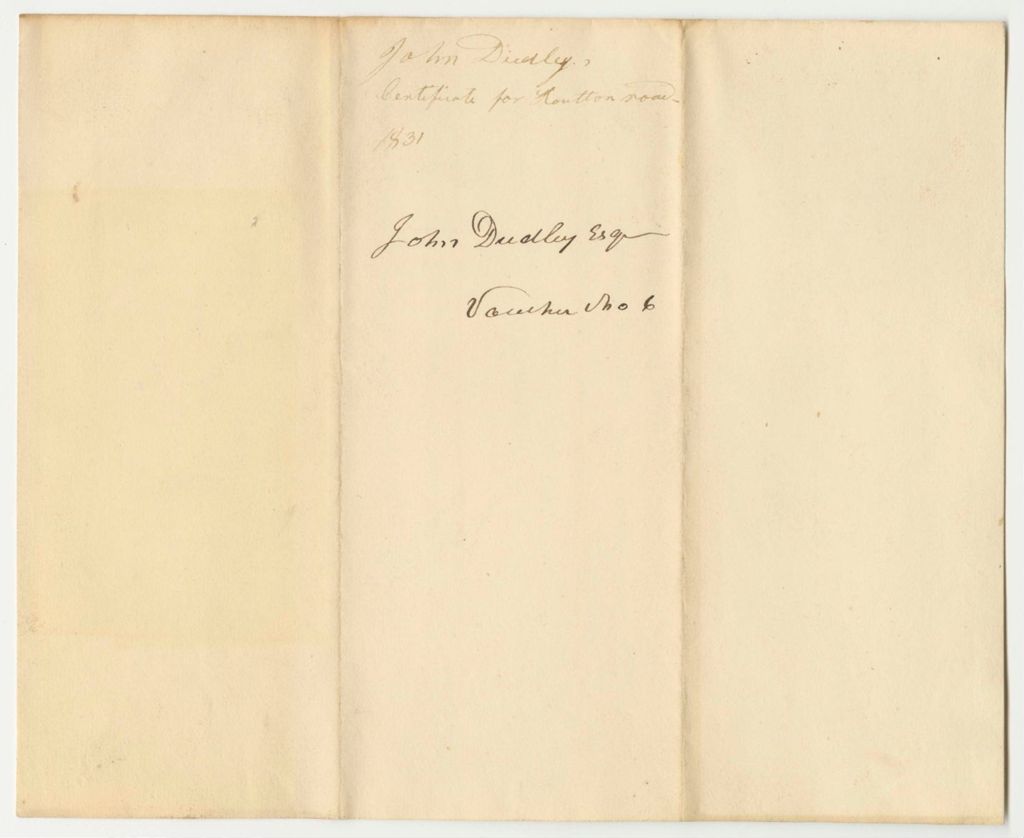 John Dudley.
Certificate for Houlton road-
1831
John Dudley Esq
Voucher No 6